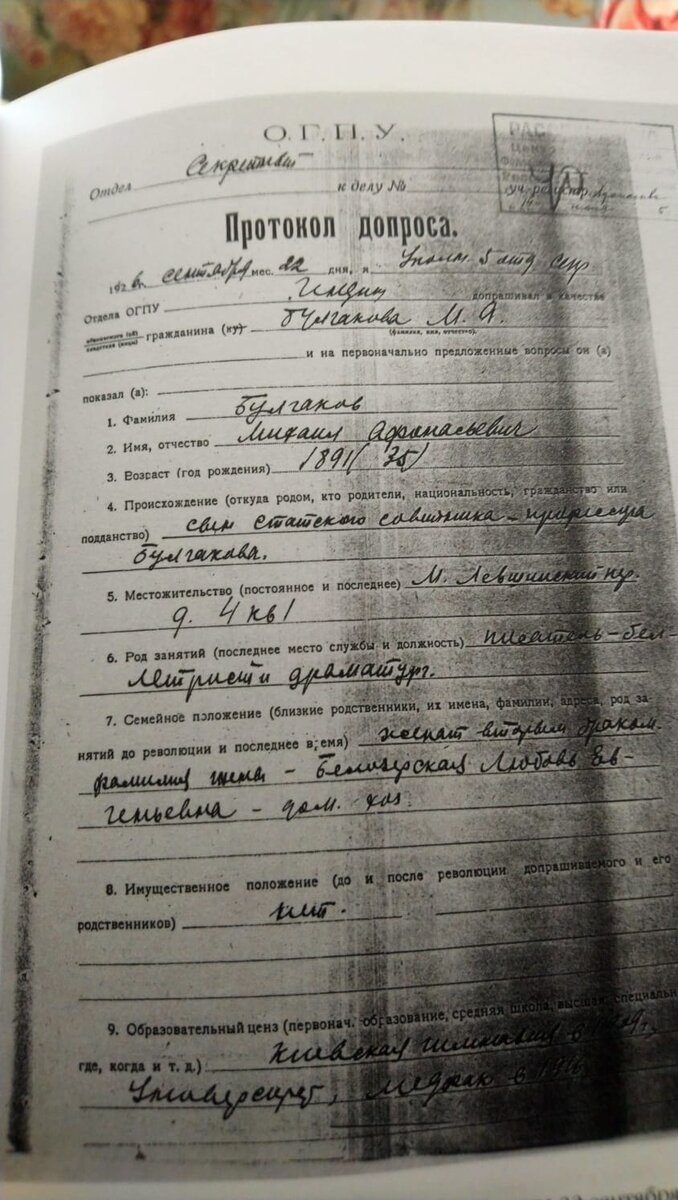 О.Г.П.У.
РАС
уч.-регистр.
Отдел Секретный к делу №
Протокол допроса.
1926 г. сентября мес. 22 дня, я Уполн. 5 отд. СО
Отдела ОГПУ Гендин допрашивал в качестве
обвиняемого (ой)
свидетеля (ницы) гражданина (ку) Булгакова М. А.
(фамилия, имя, отчество).
и на первоначально предложенные вопросы он (а)
показал (а):
1. Фамилия Булгаков
2. Имя, отчество Михаил Афанасьевич
3. Возраст (год рождения) 1891 (35)
4. Происхождение (откуда родом, кто родители, национальность, гражданство или
подданство) сын статского советника – профессора
Булгакова.
5. Местожительство (постоянное и последнее) М. Левшинский пер.
д. 4 кв 1
6. Род занятий (последнее место службы и должность) писатель-бел-
летрист и драматург.
7. Семейное положение (близкие родственники, их имена, фамилии, адреса, род за-
нятий до революции и последнее время) женат вторым браком
фамилия жены – Белозерская Любовь Ев-
геньевна – дом. хоз.
8. Имущественное положение (до и после революции допрашиваемого и его
родственников) нет.
9. Образовательный ценз (первонач. образование, средняя школа, высшая, специальн.
где, когда и т. д.) Киевская гимназия в
Университет, медфак в